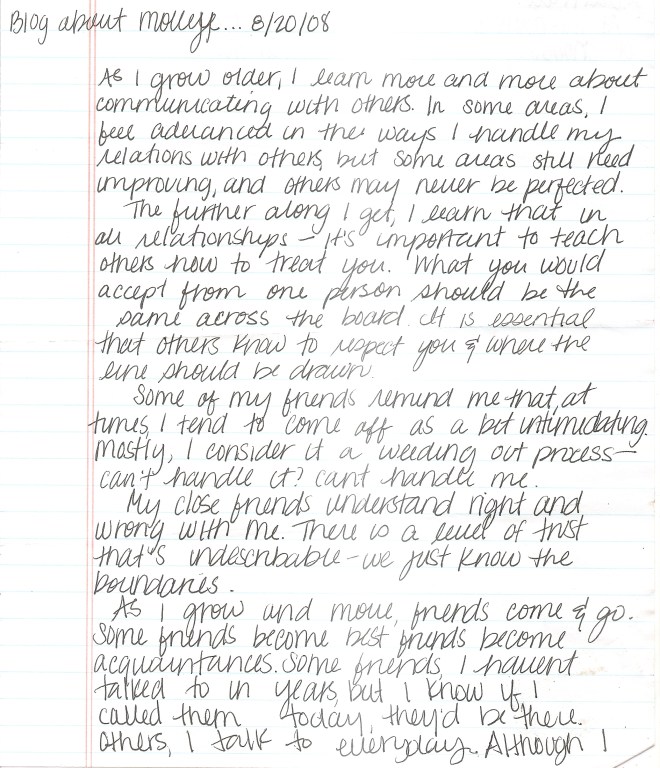 Blog about mollyx... 8/20/08
As I grow older, I learn more and more about
communicating with others. In some areas, I
feel advanced in the ways I handle my
relations with others, but some areas still need
improving, and others may never be perfected.
The further along I get, I learn that in
all relationships - it's important to teach
others how to treat you. What you would
accept from one person should be the
same across the board. It is essential
that others know to respect you & where the
line should be drawn.
Some of my friends remind me that, at
times, I tend to come off as a bit intimidating.
Mostly, I consider it a weeding out process—
can't handle it? cant handle me.
My close friends understand right and
wrong with me. There is a level of trust
that's indescribable - we just know the
boundaries.
As I grow and move, friends come & go.
Some friends become best friends become
acquaintances. Some friends, I havent
talked to in years, but I know if I
called them today, they'd be there.
Others, I talk to everyday. Although I